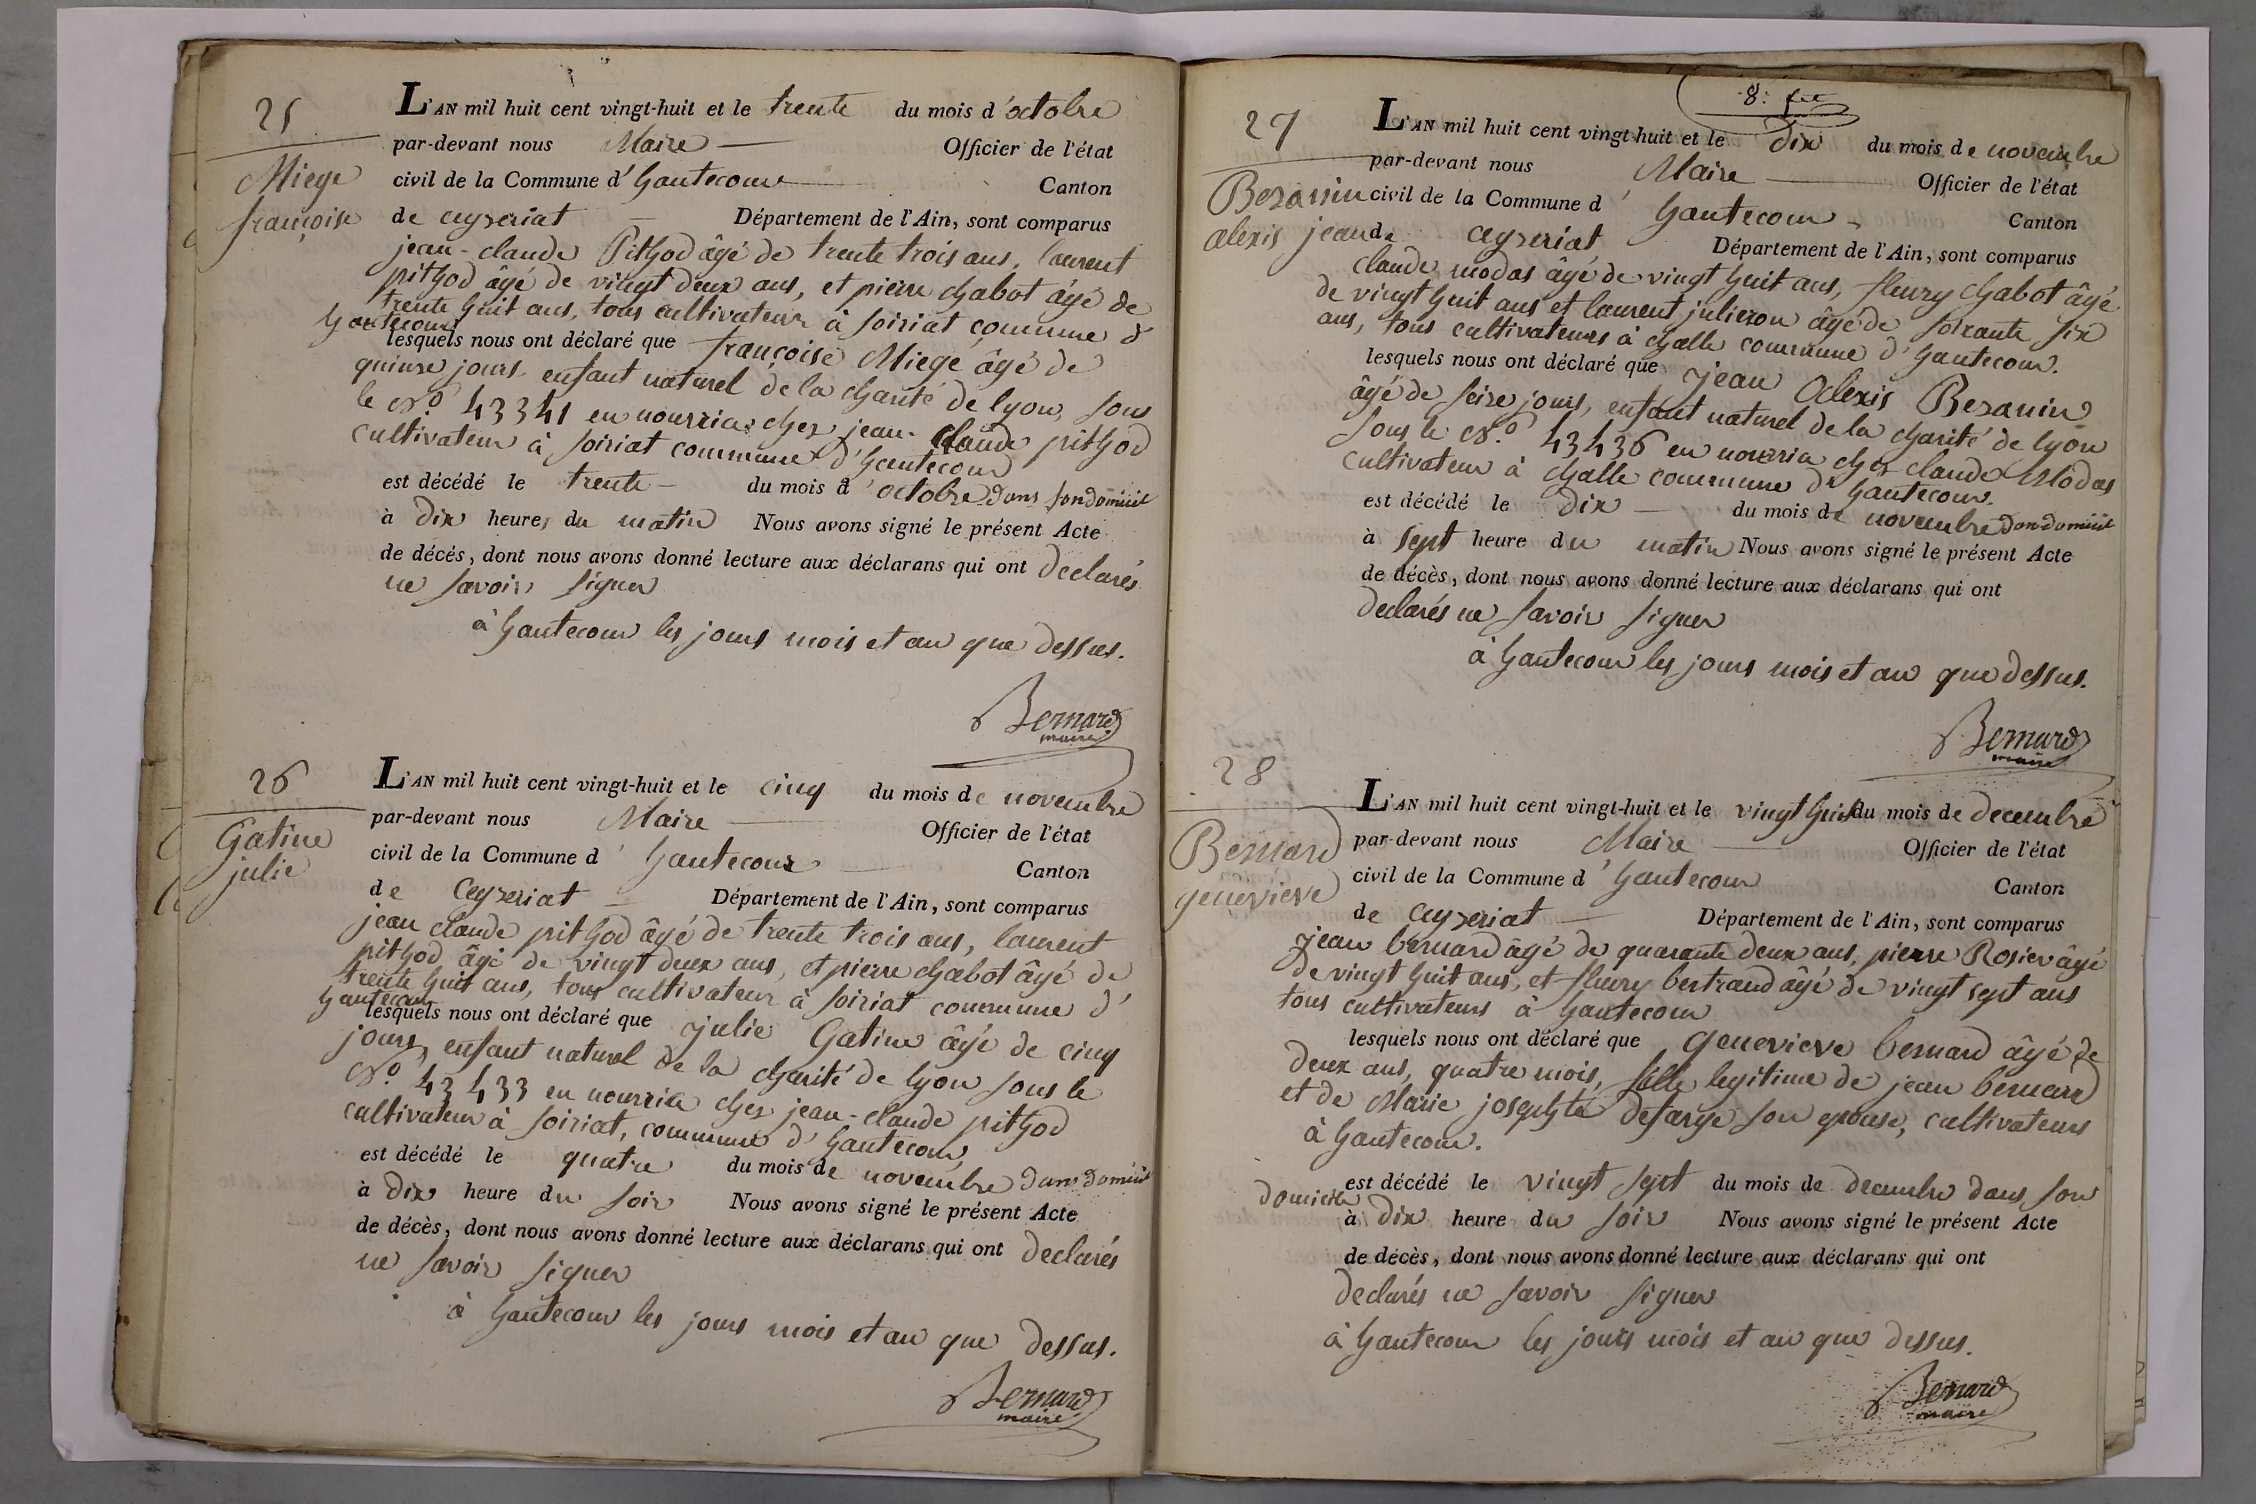 25
Miege
françoise
L'AN mil huit cent vingt-huit et le trente du mois d'octobre
par-devant nous Maire — Officier de l'état
civil de la Commune d'hautecour Canton
de ceyzeriat — Département de l'Ain, sont comparus
jean-claude Pithod âgé de trente trois ans, laurent
pithod âgé de vingt deux ans, et pierre chabot âgé de
trente huit ans, tous cultivateurs à soiriat commune d'
hautecour
lesquels nous ont déclaré que françoise Miege âgé de
quinze jours enfant naturel de la charité de lyon, sous
le N.º 43341 en nourrice chez jean-claude pithod
cultivateur à soiriat commune d'hautecour
est décédé le trente — du mois d'octobre dans son domicil
à dix heures du matin Nous avons signé le présent Acte
de décès, dont nous avons donné lecture aux déclarans qui ont declarés
ne savoir signer
à hautecour les jours mois et an que dessus.
Bernard
maire
26
Gatine
julie
L'AN mil huit cent vingt-huit et le cinq du mois de novembre
par-devant nous Maire — Officier de l'état
civil de la Commune d'hautecour Canton
de Ceyzeriat — Département de l'Ain, sont comparus
jean claude pithod âgé de trente trois ans, laurent
pithod âgé de vingt deux ans, et pierre chabot âgé de
trente huit ans, tous cultivateur à soiriat commune d'
hautecour
lesquels nous ont déclaré que julie Gatine âgé de cinq
jours, enfant naturel de la charité de lyon sous le
N.º 43433 en nourrice chez jean-claude pithod
cultivateur à soiriat, commune d'hautecour
est décédé le quatre du mois de novembre dans domicil
à dix heure du soir Nous avons signé le présent Acte
de décès, dont nous avons donné lecture aux déclarans qui ont declarés
ne savoir signer
à hautecour les jours mois et an que dessus.
Bernard
maire
8:
27
Bezanin
alexis jean
L'AN mil huit cent vingt-huit et le dix du mois de novembre
par-devant nous Maire — Officier de l'état
civil de la Commune d'hautecour — Canton
de ceyzeriat Département de l'Ain, sont comparus
claude modas âgé de vingt huit ans, fleury chabot âgé
de vingt huit ans et laurent julieron âgé de soixante six
ans, tous cultivateurs à challe commune d'hautecour.
lesquels nous ont déclaré que jean Alexis Bezanin
âgé de seize jours, enfant naturel de la charité de lyon
sous le N.º 43436 en nourrice chez claude Modas
cultivateur à challe commune d'hautecour.
est décédé le dix — du mois de novembre dans domicil
à sept heure du matin Nous avons signé le présent Acte
de décès, dont nous avons donné lecture aux déclarans qui ont
declarés ne savoir signer
à hautecour les jours mois et an que dessus.
Bernard
maire
28
Bernard
genevieve
L'AN mil huit cent vingt-huit et le vingt huit du mois de decembre
par-devant nous Maire — Officier de l'état
civil de la Commune d'hautecour Canton
de Ceyzeriat — Département de l'Ain, sont comparus
jean bernard âgé de quarante deux ans, pierre Rosier âgé
de vingt huit ans, et fleury bertrand âgé de vingt sept ans
tous cultivateurs à hautecour
lesquels nous ont déclaré que genevieve bernard âgé de
deux ans, quatre mois, fille legitime de jean bernard
et de Marie josephte defarge son epouse, cultivateurs
à hautecour.
est décédé le vingt sept du mois de decembre dans son
domicile
à dix heure du soir Nous avons signé le présent Acte
de décès, dont nous avons donné lecture aux déclarans qui ont
declarés ne savoir signer
à hautecour les jours mois et an que dessus.
Bernard
maire